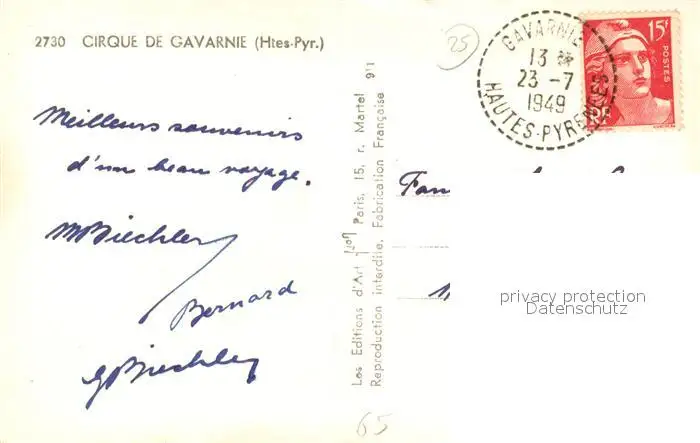 2730 CIRQUE DE GAVARNIE (Htes-Pyr.)
Meilleurs souvenirs
d'un beau voyage.
MBiechler
Bernard
GBiechler
Les Editions d'Art Paris, 15, r. Martel
Reproduction interdite. Fabrication Française
25
GAVARNIE
13
23 -7
1949
HAUTES-PYRENEES
15F
POSTES
RF
privacy protection
Datenschutz
65